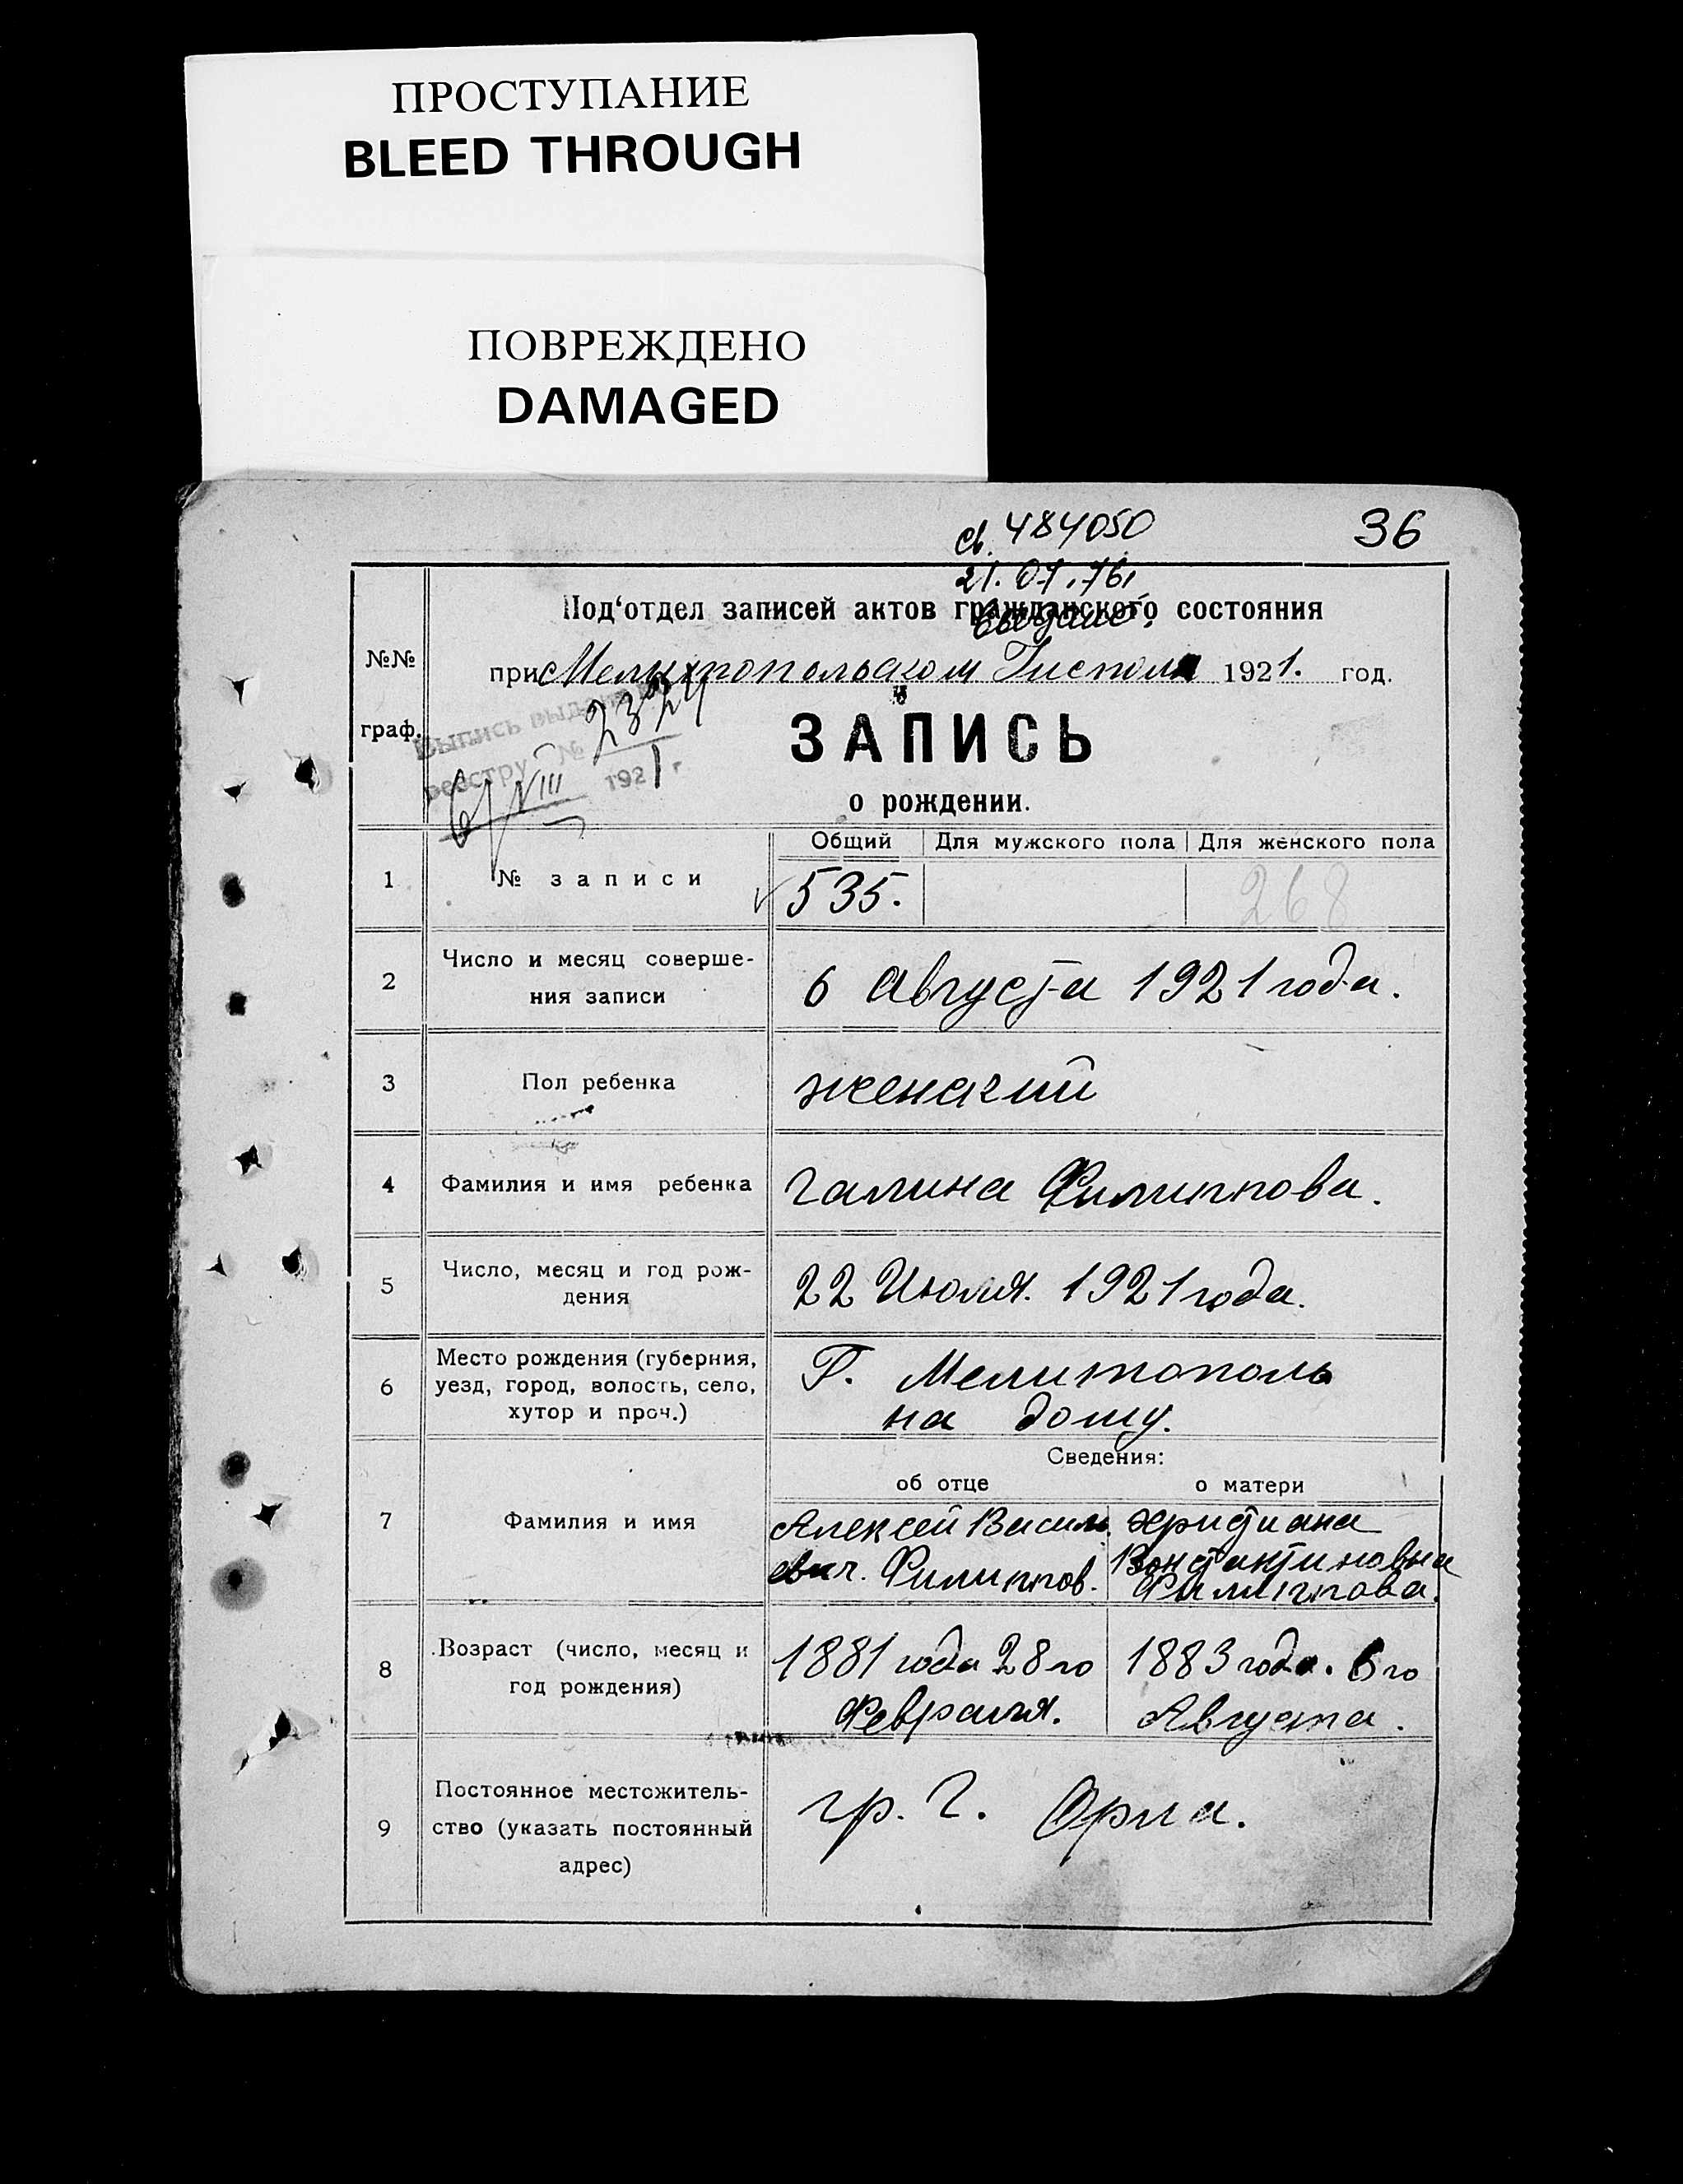 ПРОСТУПАНИЕ
BLEED THROUGH
ПОВРЕЖДЕНО
DAMAGED
36
св. 484050
21.07.76.
Под'отдел записей актов гражданского состояния
№№ граф.
при Мелитопольском 1921. год.
Выпись выдана
реестру № 2324
6/VIII 1921 г.
ЗАПИСЬ
о рождении.
Общий Для мужского пола Для женского пола
1 № записи 535. 268
2 Число и месяц соверше-
ния записи
6 Августа 1921 года.
3 Пол ребенка женский
4 Фамилия и имя ребенка Галина Филиппова.
5 Число, месяц и год рож-
дения
22 Июля. 1921 года.
6 Место рождения (губерния,
уезд, город, волость, село,
хутор и проч.)
Г. Мелитополь
на дому.
Сведения:
об отце о матери
7 Фамилия и имя
Алексей Василь
евич. Филиппов.
Христиана
Константиновна
Филиппова.
8 Возраст (число, месяц и
год рождения)
1881 года 28го
Февраля.
1883 года. 6го
Августа.
9 Постоянное местожитель-
ство (указать постоянный
адрес)
гр. г. Орла.